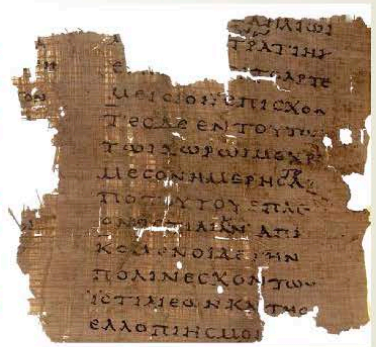 ΗΛΙΩΙ
ΤΡΑΤΙΗ
ΤΟΑΡΤΕ
ΜΕΙϹΙΟΝΕΠΙϹΧΟΝ
ΤΕϹΔΕΕΝΤΟΥΤΩ
ΤΩΙΧΩΡΩΙΜΕΧΡΙ
ΜΕϹΟΝΗΜΕΡΗϹΑ
ΠΟΤΟΥΤΟΥΕΠΛΕ
ΤΙΑΙΗΝΑΠΙ
ΚΟΜΕΝΟΙΔΕΤΗΝ
ΠΟΛΙΝΕϹΧΟΝΤΩΝ
ΪϹΤΙΑΙΕΩΝΚΑΙΤΗϹ
ΕΛΛΟΠΙΗϹΜΟΙ